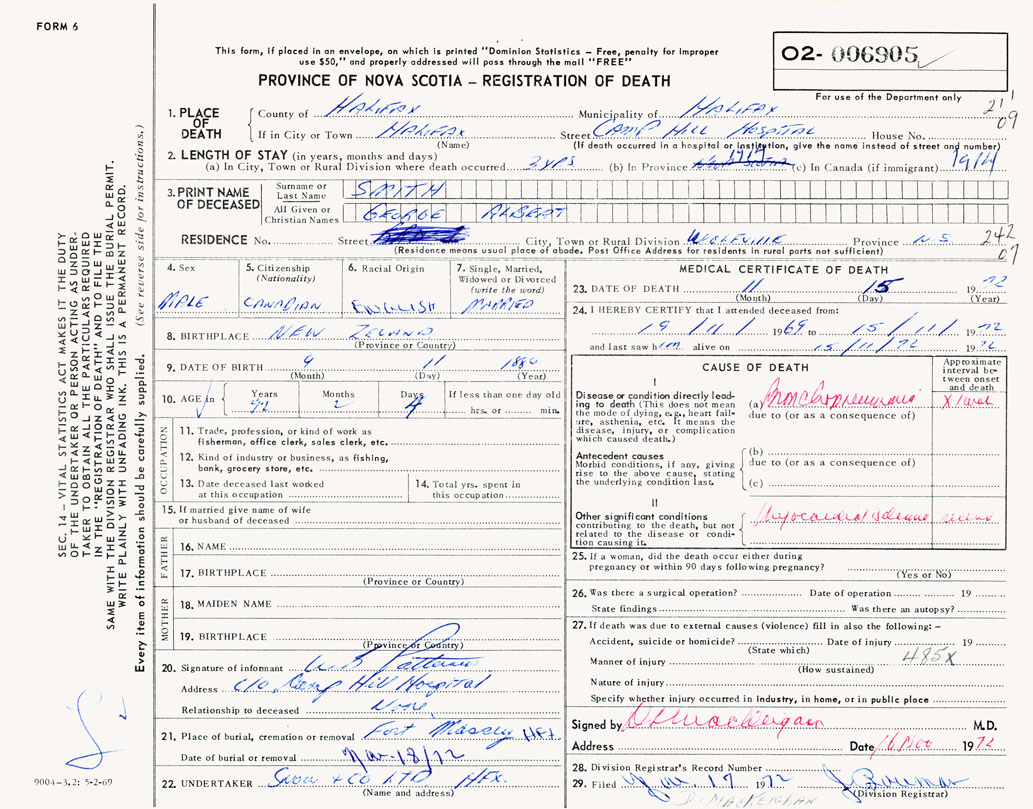 FORM 6
This form, if placed in an envelope, on which is printed "Dominion Statistics – Free, penalty for improper
use $50," and properly addressed will pass through the mail "FREE"
PROVINCE OF NOVA SCOTIA – REGISTRATION OF DEATH
O2- 006905
For use of the Department only
211
09
1. PLACE OF DEATH
County of HALIFAX Municipality of HALIFAX
If in City or Town HALIFAX Street CAMP HILL HOSPITAL House No.
(Name) (If death occurred in a hospital or institution, give the name instead of street and number)
2. LENGTH OF STAY (in years, months and days)
(a) In City, Town or Rural Division where death occurred 3 yrs (b) In Province 1914 (c) In Canada (if immigrant) 1914
3. PRINT NAME OF DECEASED
Surname or Last Name SMITH
All Given or Christian Names GEORGE ALBERT
RESIDENCE No. Street City, Town or Rural Division WOLFVILLE Province N.S.
242
07
(Residence means usual place of abode. Post Office Address for residents in rural parts not sufficient)
4. Sex
MALE
5. Citizenship
(Nationality)
CANADIAN
6. Racial Origin
ENGLISH
7. Single, Married,
Widowed or Divorced
(write the word)
MARRIED
8. BIRTHPLACE NEW ZELAND
(Province or Country)
9. DATE OF BIRTH 9 11 1880
(Month) (Day) (Year)
10. AGE in Years 92 Months 2 Days 4 If less than one day old
hrs. or min.
OCCUPATION
11. Trade, profession, or kind of work as
fisherman, office clerk, sales clerk, etc.
12. Kind of industry or business, as fishing,
bank, grocery store, etc.
13. Date deceased last worked
at this occupation
14. Total yrs. spent in
this occupation
15. If married give name of wife
or husband of deceased
FATHER
16. NAME
17. BIRTHPLACE
(Province or Country)
MOTHER
18. MAIDEN NAME
19. BIRTHPLACE
(Province or Country)
20. Signature of informant
Address c/o Camp Hill Hospital
Relationship to deceased None
21. Place of burial, cremation or removal Fort Massey HFX.
Date of burial or removal Nov. 18/72
22. UNDERTAKER Snow + Co LTD HFx.
(Name and address)
MEDICAL CERTIFICATE OF DEATH
23. DATE OF DEATH 11 15 1972
(Month) (Day) (Year)
24. I HEREBY CERTIFY that I attended deceased from:
19 / 11 / 1969 to 15 / 11 / 1972
and last saw him alive on 15 / 11 / 72 1972
CAUSE OF DEATH
Approximate
interval be-
tween onset
and death
I
Disease or condition directly lead-
ing to death (This does not mean
the mode of dying, e.g., heart fail-
ure, asthenia, etc. It means the
disease, injury, or complication
which caused death.)
(a) Bronchopneumonia
due to (or as a consequence of)
Antecedent causes
Morbid conditions, if any, giving
rise to the above cause, stating
the underlying condition last.
(b)
due to (or as a consequence of)
(c)
II
Other significant conditions
contributing to the death, but not
related to the disease or condi-
tion causing it.
Myocardial
25. If a woman, did the death occur either during
pregnancy or within 90 days following pregnancy?
(Yes or No)
26. Was there a surgical operation? Date of operation 19
State findings Was there an autopsy?
27. If death was due to external causes (violence) fill in also the following:–
Accident, suicide or homicide? Date of injury 19
(State which)
Manner of injury 485X
(How sustained)
Nature of injury
Specify whether injury occurred in industry, in home, or in public place
Signed by M.D.
Address Date 16 Nov 1972
28. Division Registrar's Record Number
29. Filed 17 1972
(Division Registrar)
D. MACKEIGAN
SEC. 14 – VITAL STATISTICS ACT MAKES IT THE DUTY
OF THE UNDERTAKER OR PERSON ACTING AS UNDER-
TAKER TO OBTAIN ALL THE PARTICULARS REQUIRED
IN THE "REGISTRATION OF DEATH" AND TO FILE THE
SAME WITH THE DIVISION REGISTRAR WHO SHALL ISSUE THE BURIAL PERMIT.
WRITE PLAINLY WITH UNFADING INK. THIS IS A PERMANENT RECORD.
Every item of information should be carefully supplied. (See reverse side for instructions.)
9004-3.2: 5-2-69